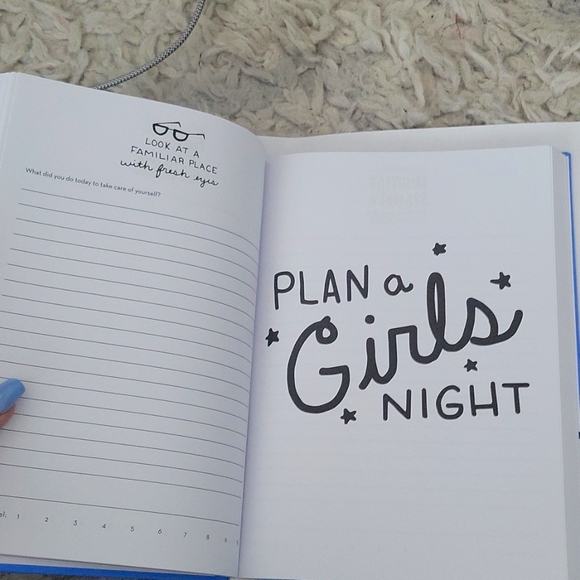 LOOK AT A
FAMILIAR PLACE
with fresh eyes
What did you do today to take care of yourself?
1 2 3 4 5 6 7 8 9
PLAN a
Girls
NIGHT